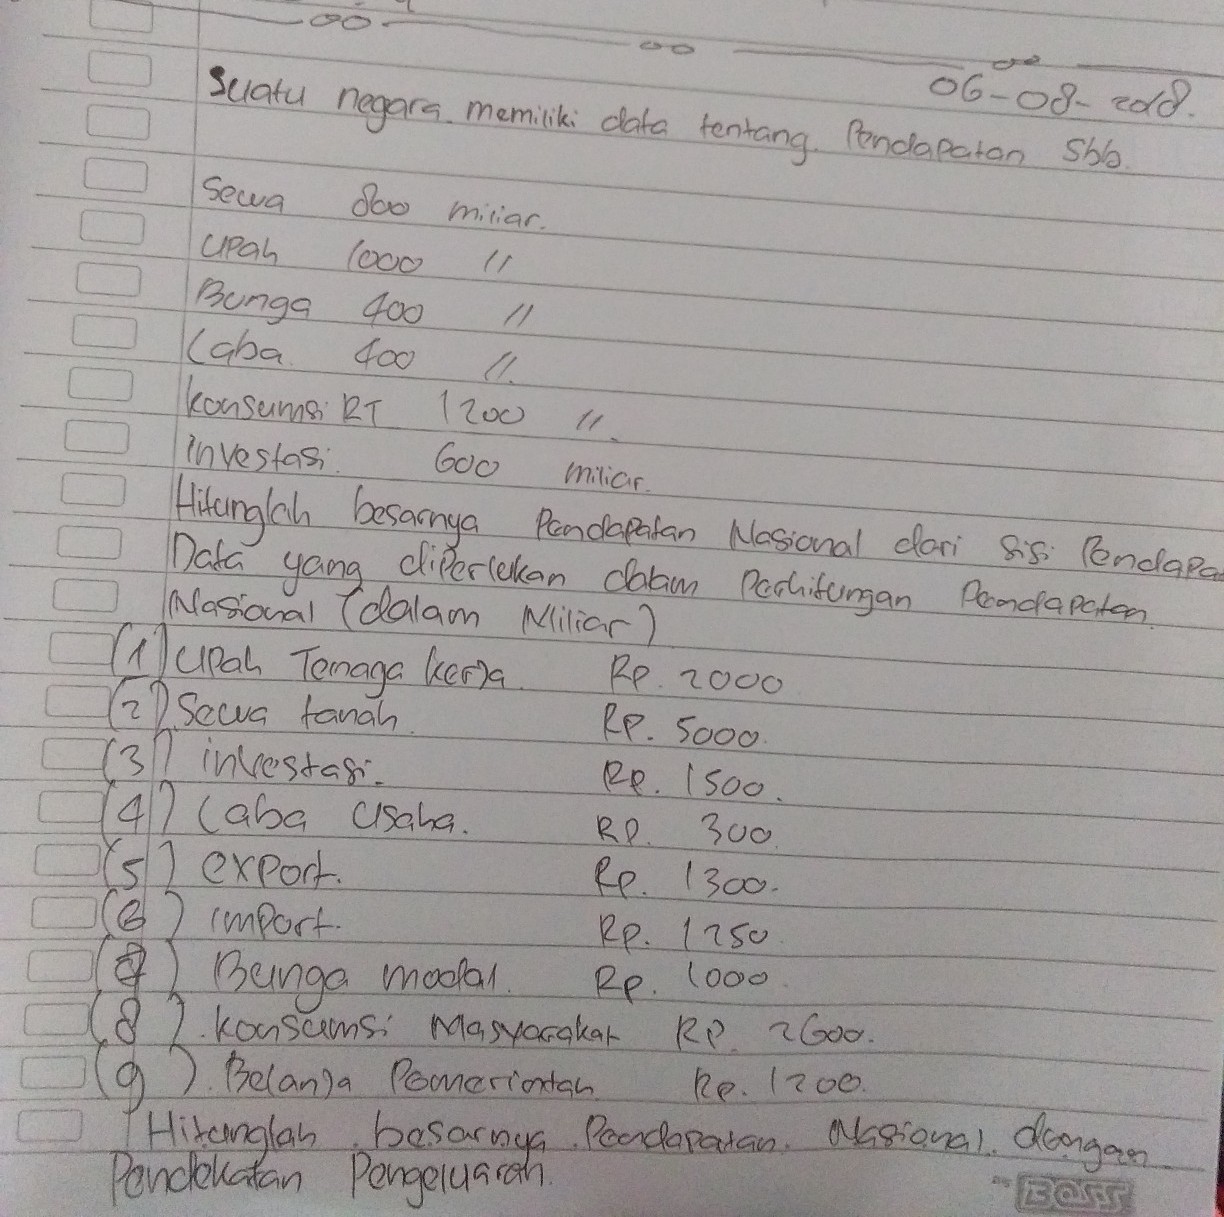 06-08-2018.
Suatu negara memiliki data tentang Pendapatan sbb.
Sewa 800 miliar.
Upah 1000 "
Bunga 400 "
Laba 400 ".
konsumsi RT 1200 ".
investasi 600 miliar.
Hitunglah besarnya Pendapatan Nasional dari sisi Pendapa
Data yang diperlukan dalam Perhitungan Pendapatan
Nasional (dalam Miliar)
(1) Upah Tenaga kerja Rp. 2000
(2) Sewa tanah Rp. 5000.
(3) investasi Rp. 1500.
(4) Laba Usaha. Rp. 300.
(5) export. Rp. 1300.
(6) import. Rp. 1250
(7) Bunga modal. Rp. 1000
(8). konsumsi Masyarakat Rp. 2600.
(9). Belanja Pemerintah Rp. 1200.
Hitunglah besarnya Pendapatan Nasional dengan
Pendekatan Pengeluaran.
BOSS